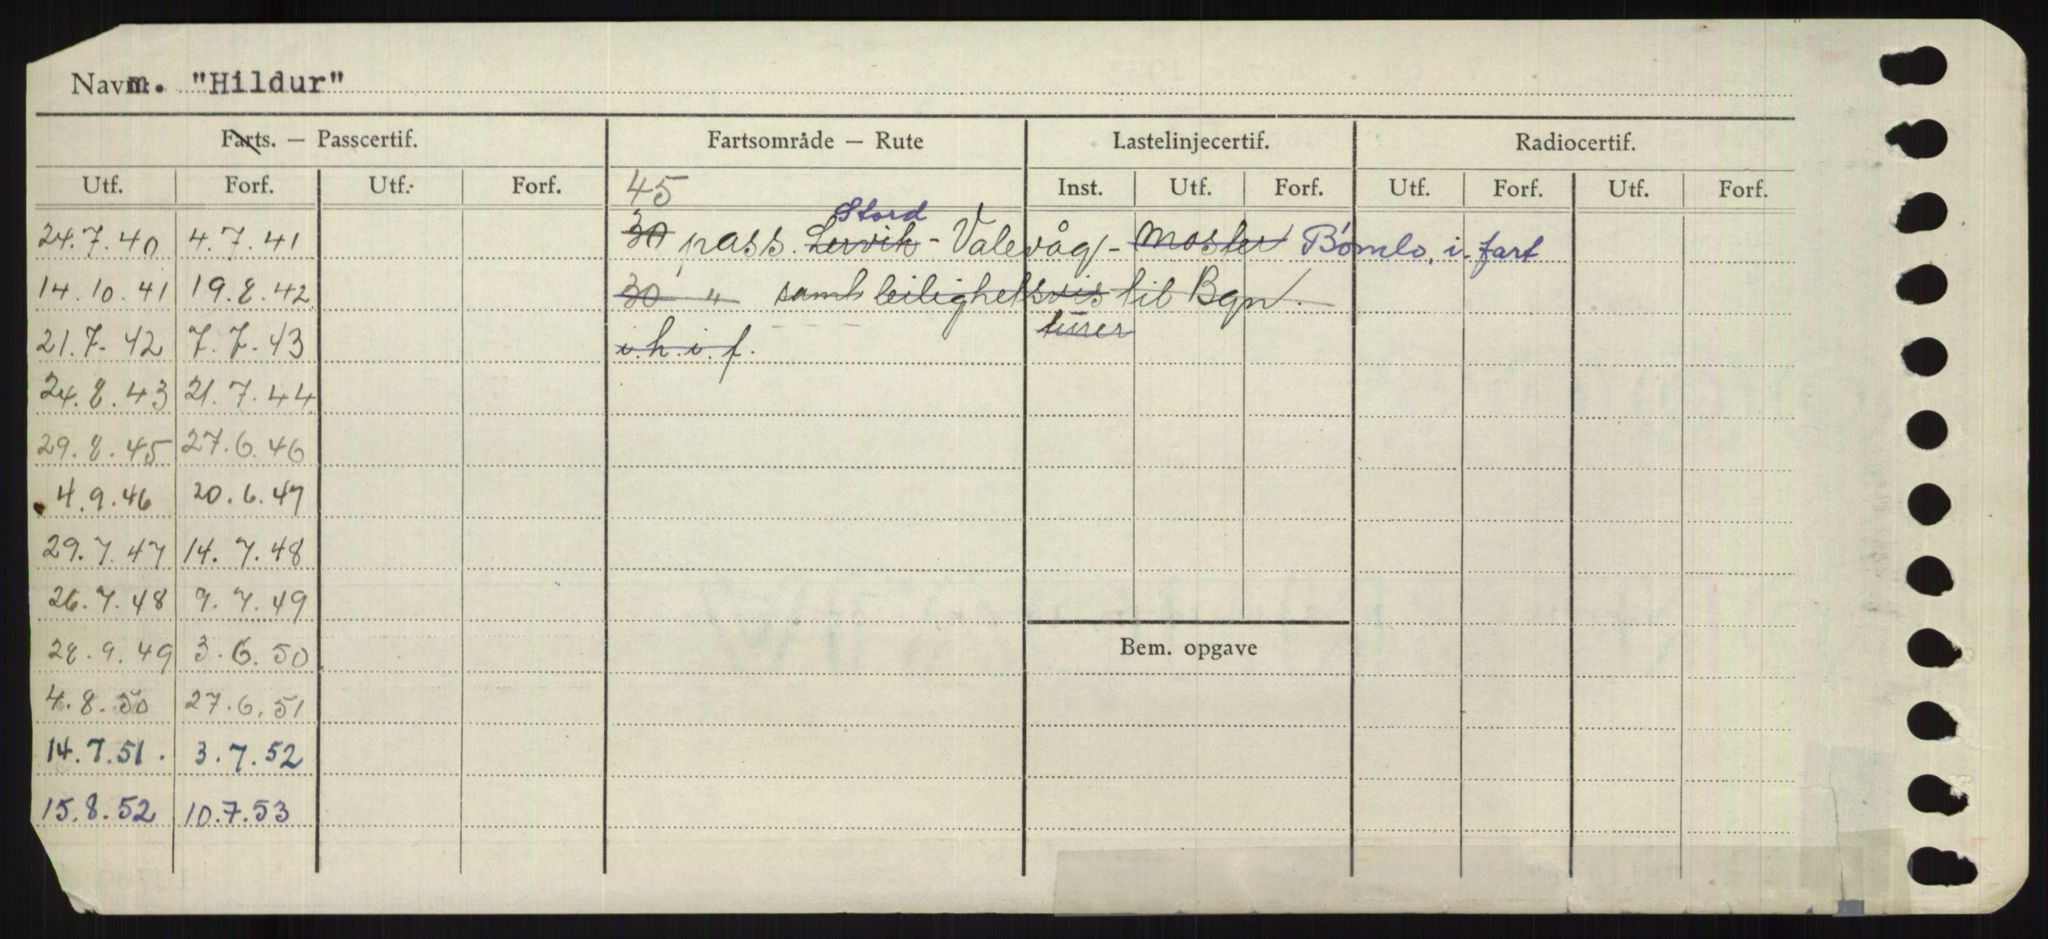 Navn. "Hildur"
Farts. — Passcertif. Fartsområde — Rute Lastelinjecertif. Radiocertif.
Utf. Forf. Utf. Forf. 45 Inst. Utf. Forf. Utf. Forf. Utf. Forf.
Stord
24.7.40 4.7.41 30 pass. Lervik - Valevåg - Moster Bømlo. i. fart
14.10.41 19.8.42 30 " samt leilighetsvis til Bgn.
turer
21.7.42 7.7.43 i.h.i.f.
24.8.43 21.7.44
29.8.45 27.6.46
4.9.46 20.6.47
29.7.47 14.7.48
26.7.48 9.7.49
28.9.49 3.6.50
Bem. opgave
4.8.50 27.6.51
14.7.51. 3.7.52
15.8.52 10.7.53